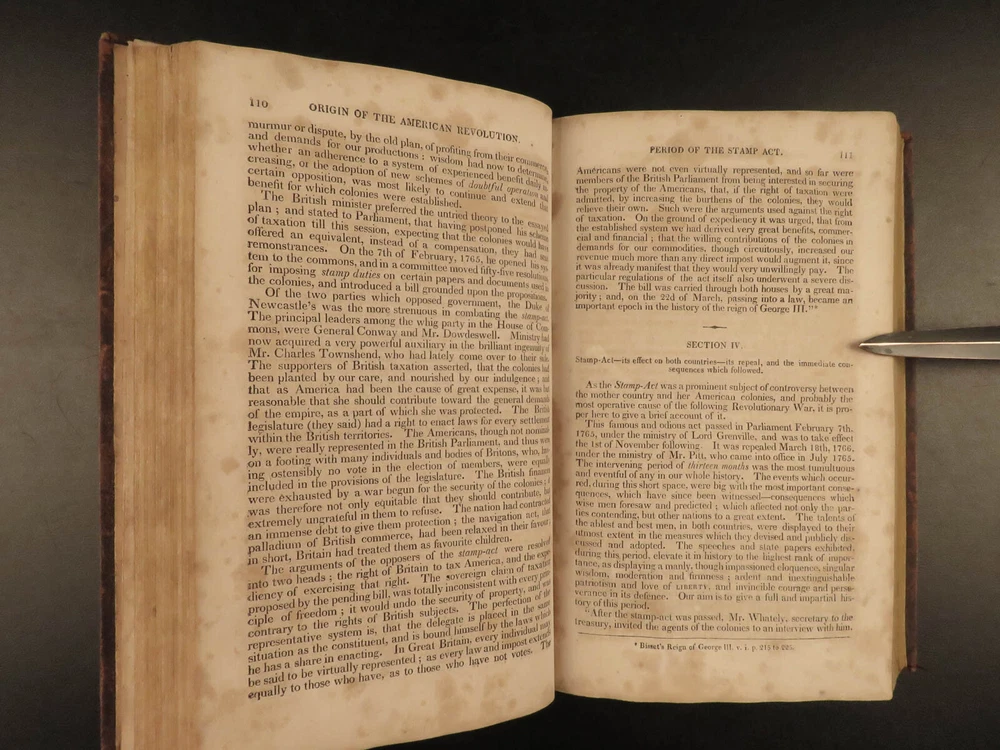 110 ORIGIN OF THE AMERICAN REVOLUTION.
murmur or dispute, by the old plan, of profiting from their
and demands for our productions: wisdom had now to
whether an adherence to a system of experienced benefit daily
creasing, or the adoption of new schemes of doubtful operation and
certain opposition, was most likely to continue and extend
benefit for which colonies were established.
The British minister preferred the untried theory to the essayed
plan; and stated to Parliament, that having postponed his scheme
of taxation till this session, expecting that the colonies would have
offered an equivalent, instead of a compensation, they had sent
remonstrances. On the 7th of February, 1765, he opened his sys-
tem to the commons, and in a committee moved fifty-five resolutions,
for imposing stamp duties on certain papers and documents used in
the colonies, and introduced a bill grounded upon the propositions.
Of the two parties which opposed government, the Duke of
Newcastle's was the more strenuous in combating the stamp-act.
The principal leaders among the whig party in the House of Com-
mons, were General Conway and Mr. Dowdeswell. Ministry had
now acquired a very powerful auxiliary in the brilliant ingenuity of
Mr. Charles Townshend, who had lately come over to their side.
The supporters of British taxation asserted, that the colonies had
been planted by our care, and nourished by our indulgence; and
that as America had been the cause of great expense, it was but
reasonable that she should contribute toward the general demands
of the empire, as a part of which she was protected. The British
legislature (they said) had a right to enact laws for every settlement
within the British territories. The Americans, though not nominal-
ly, were really represented in the British Parliament, and thus were
on a footing with many individuals and bodies of Britons, who, hav-
ing ostensibly no vote in the election of members, were equally
included in the provisions of the legislature. The British finances
were exhausted by a war begun for the security of the colonies; it
was therefore not only equitable that they should contribute, but
extremely ungrateful in them to refuse. The nation had contracted
an immense debt to give them protection; the navigation act, that
palladium of British commerce, had been relaxed in their favour;
in short, Britain had treated them as favourite children.
The arguments of the opposers of the stamp-act were resolved
into two heads; the right of Britain to tax America, and the expe-
diency of exercising that right. The sovereign claim of taxation
proposed by the pending bill, was totally inconsistent with every prin-
ciple of freedom; it would undo the security of property, and was
contrary to the rights of British subjects. The perfection of the
representative system is, that the delegate is placed in the same
situation as the constituent, and is bound himself by the laws which
he has a share in enacting. In Great Britain, every individual may
be said to be virtually represented; as every law and impost extends
equally to those who have, as to those who have not votes. The
PERIOD OF THE STAMP ACT. 111
Americans were not even virtually represented, and so far were
members of the British Parliament from being interested in securing
the property of the Americans, that, if the right of taxation were
admitted, by increasing the burthens of the colonies, they would
relieve their own. Such were the arguments used against the right
of taxation. On the ground of expediency it was urged, that from
the established system we had derived very great benefits, commer-
cial and financial; that the willing contributions of the colonies in
demands for our commodities, though circuitously, increased our
revenue much more than any direct impost would augment it, since
it was already manifest that they would very unwillingly pay. The
particular regulations of the act itself also underwent a severe dis-
cussion. The bill was carried through both houses by a great ma-
jority; and, on the 22d of March, passing into a law, became an
important epoch in the history of the reign of George III."*
SECTION IV.
Stamp-Act—its effect on both countries—its repeal, and the immediate con-
sequences which followed.
As the Stamp-Act was a prominent subject of controversy between
the mother country and her American colonies, and probably the
most operative cause of the following Revolutionary War, it is pro-
per here to give a brief account of it.
This famous and odious act passed in Parliament February 7th,
1765, under the ministry of Lord Grenville, and was to take effect
the 1st of November following. It was repealed March 18th, 1766,
under the ministry of Mr. Pitt, who came into office in July 1765.
The intervening period of thirteen months was the most tumultuous
and eventful of any in our whole history. The events which occur-
red, during this short space, were big with the most important conse-
quences, which have since been witnessed—consequences which
wise men foresaw and predicted; which affected not only the par-
ties contending, but other nations to a great extent. The talents of
the ablest and best men, in both countries, were displayed to their
utmost extent in the measures which they devised and publicly dis-
cussed and adopted. The speeches and state papers exhibited,
during this period, elevate it in history to the highest rank of impor-
tance, as displaying a manly, though impassioned eloquence, singular
wisdom, moderation and firmness; ardent and inextinguishable
patriotism and love of LIBERTY, and invincible courage and perse-
verance in its defence. Our aim is to give a full and impartial his-
tory of this period.
"After the stamp-act was passed, Mr. Whately, secretary to the
treasury, invited the agents of the colonies to an interview with him.
* Bisset's Reign of George III. v. i. p. 215 to